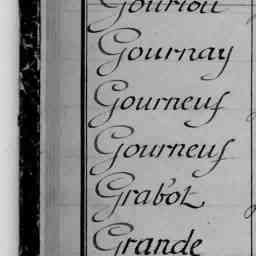 Gouriou
Gournay
Gourneuf
Gourneuf
Grabot
Grande